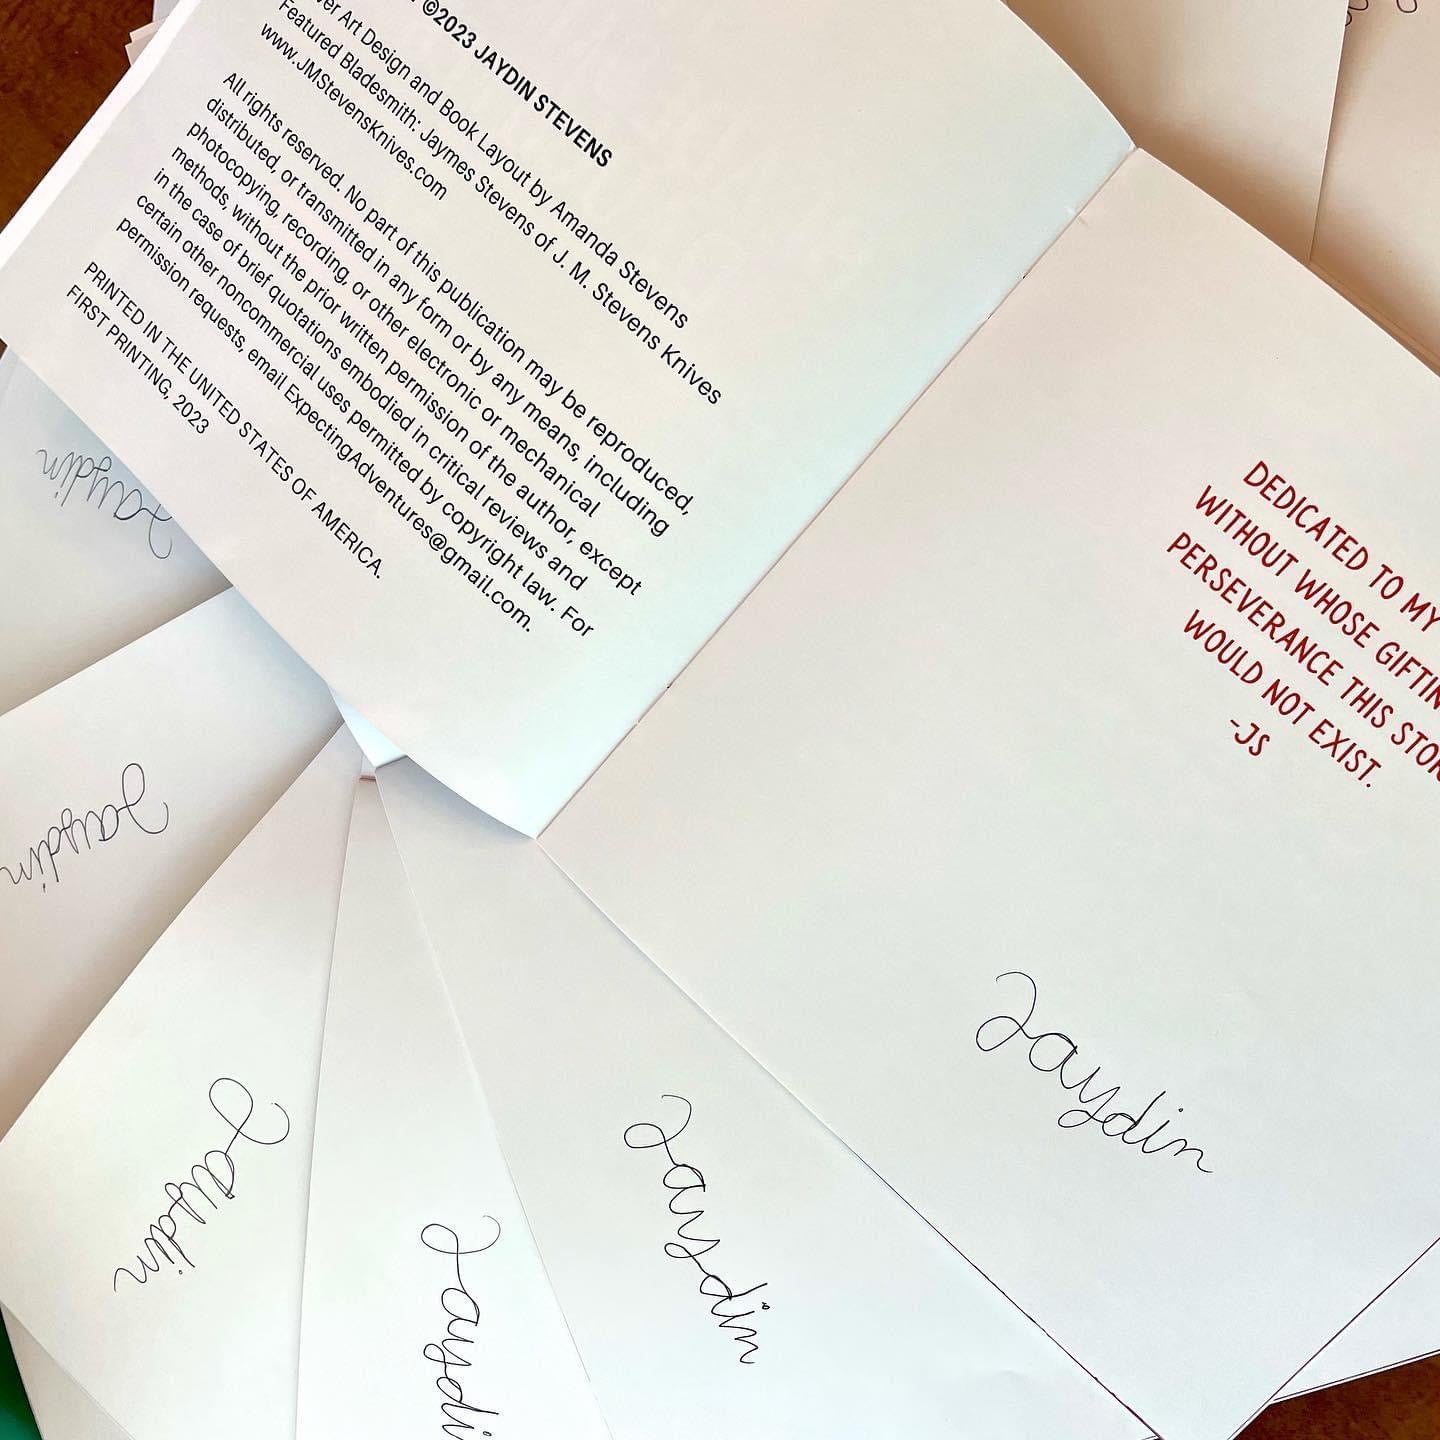 ©2023 JAYDIN STEVENS
Art Design and Book Layout by Amanda Stevens
Featured Bladesmith: Jaymes Stevens of J. M. Stevens Knives
www.JMStevensKnives.com
All rights reserved. No part of this publication may be reproduced,
distributed, or transmitted in any form or by any means, including
photocopying, recording, or other electronic or mechanical
methods, without the prior written permission of the author, except
in the case of brief quotations embodied in critical reviews and
certain other noncommercial uses permitted by copyright law. For
permission requests, email ExpectingAdventures@gmail.com.
PRINTED IN THE UNITED STATES OF AMERICA.
FIRST PRINTING, 2023
DEDICATED TO MY
WITHOUT WHOSE
PERSEVERANCE THIS
WOULD NOT EXIST.
-JS
Jaydin
Jaydin
Jaydin
Jaydin
Jaydin